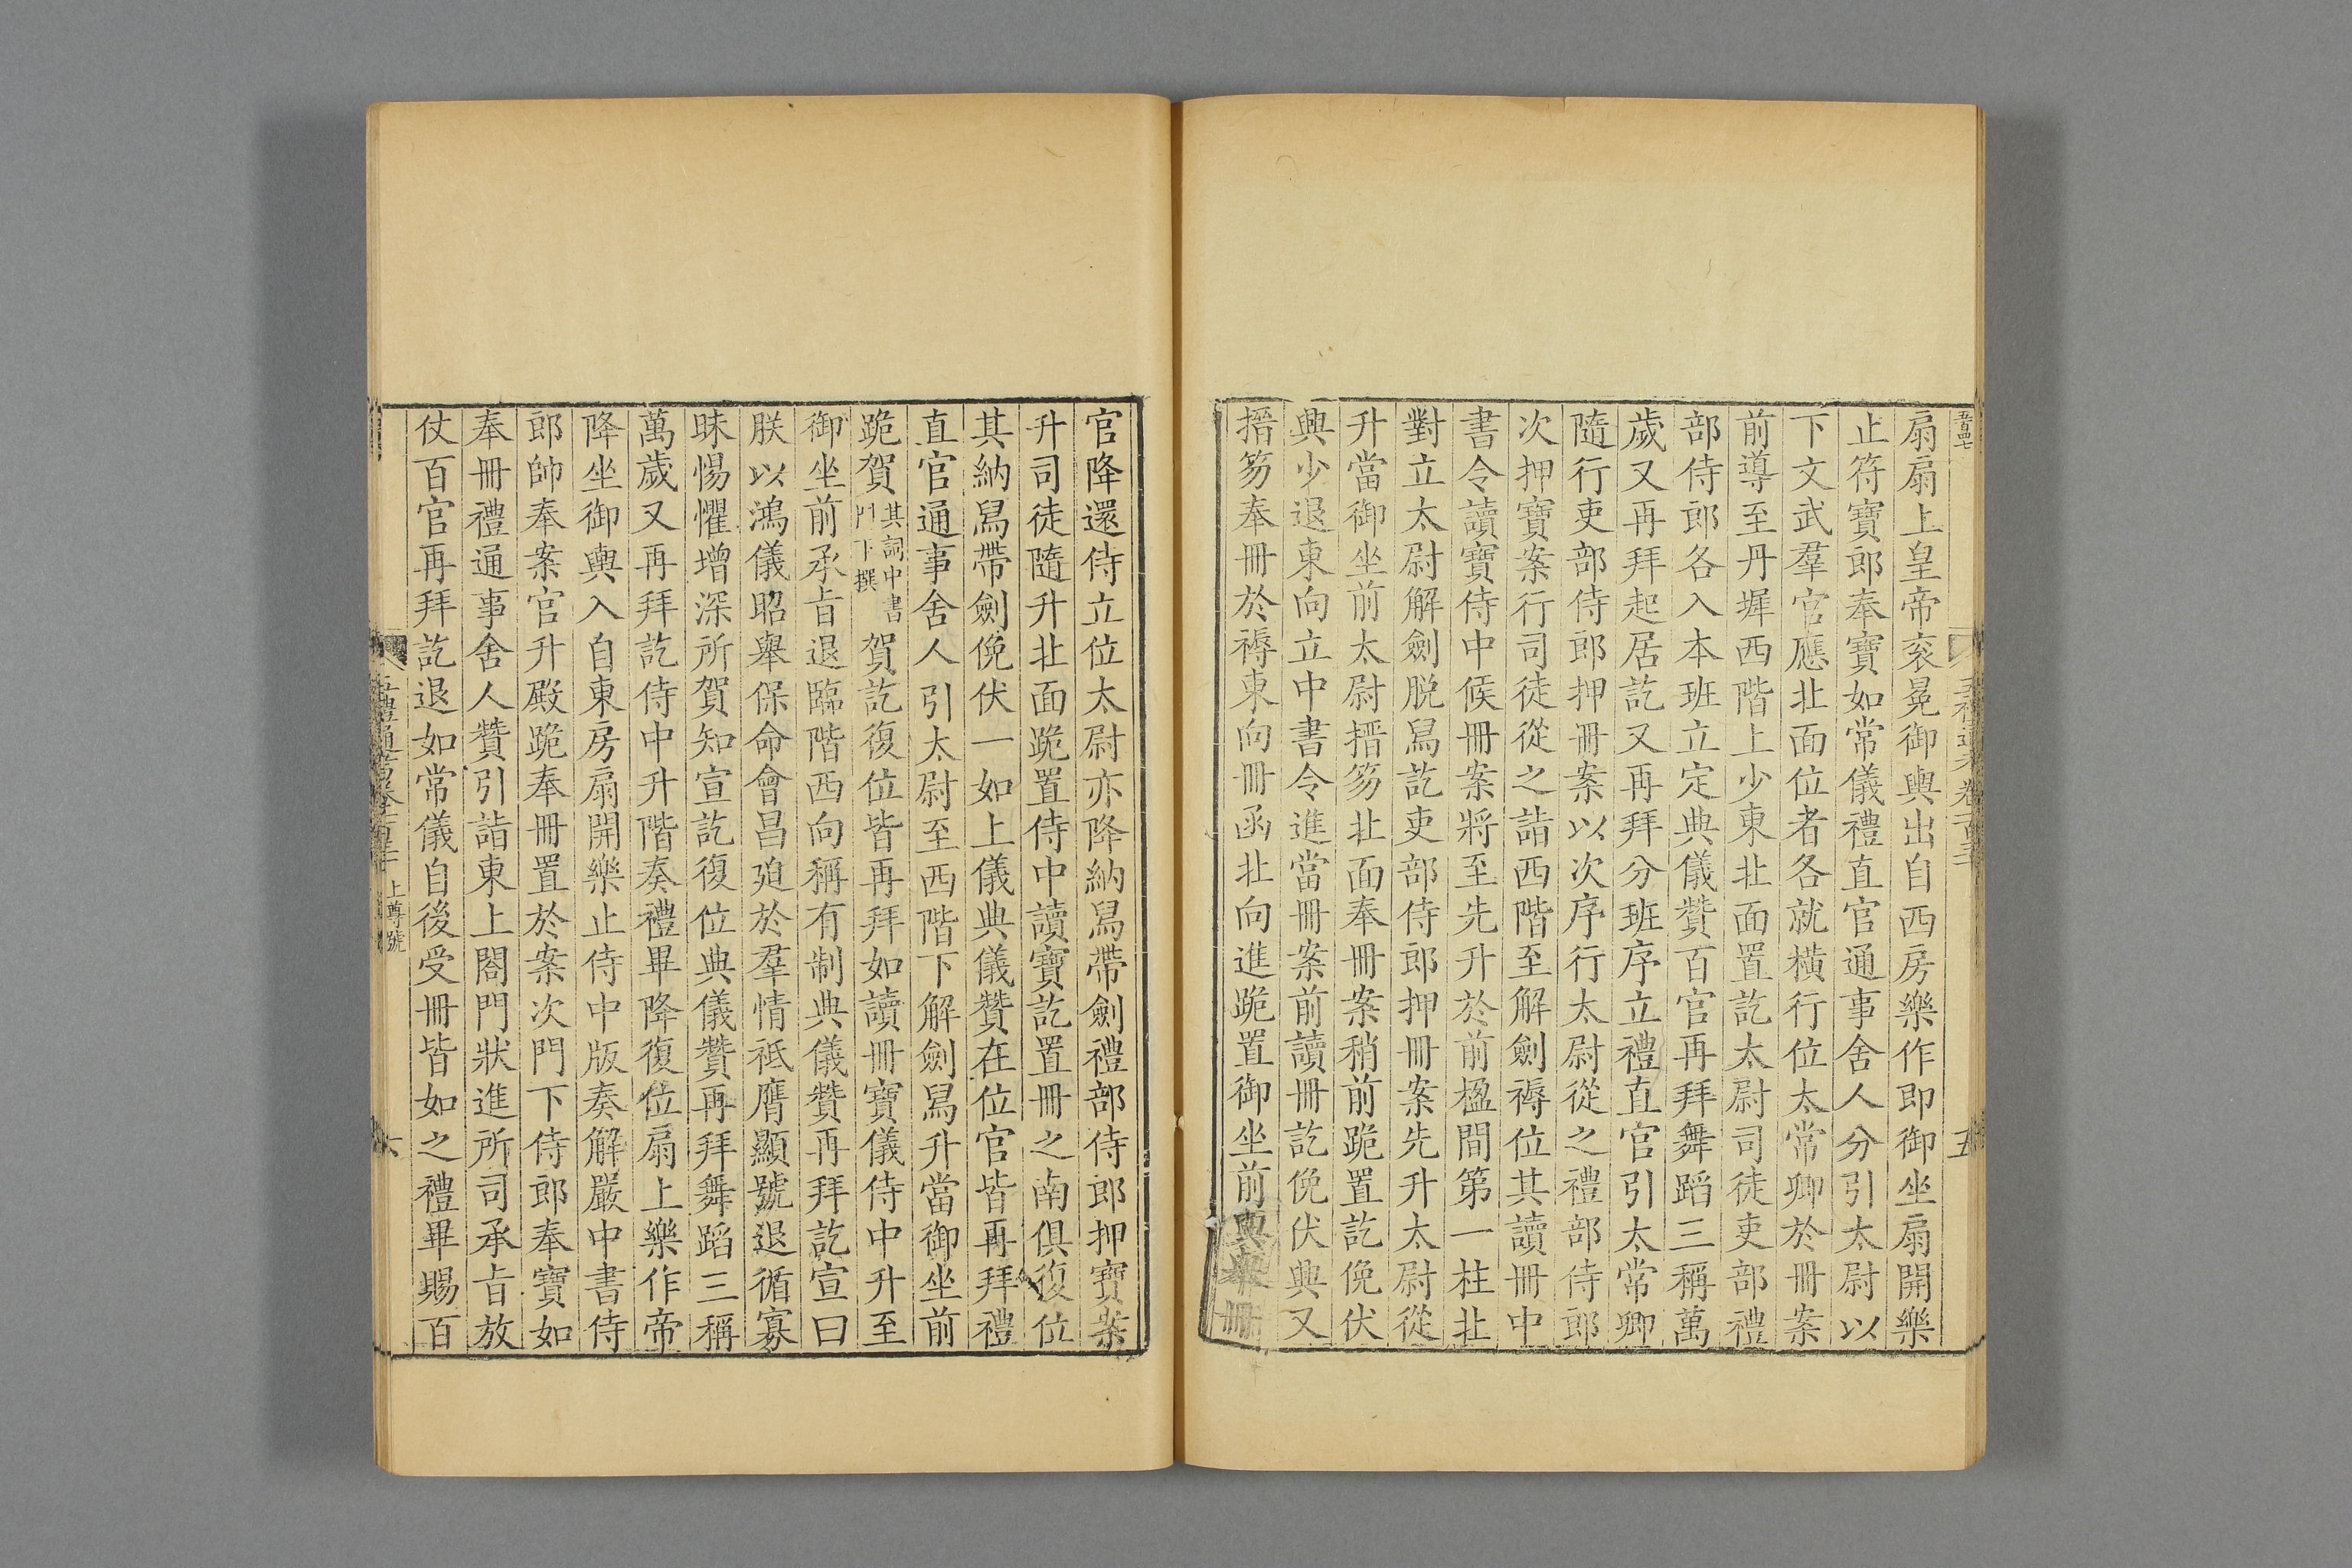 五百四七
五
扇扇上皇帝袞冕御輿出自西房樂作即御坐扇開樂
止符寶郎奉寶如常儀禮直官通事舍人分引太尉以
下文武羣官應北面位者各就橫行位太常卿於冊案
前導至丹墀西階上少東北面置訖太尉司徒吏部禮
部侍郎各入本班立定典儀贊百官再拜舞蹈三稱萬
歲又再拜起居訖又再拜分班序立禮直官引太常卿
隨行吏部侍郎押冊案以次序行太尉從之禮部侍郎
次押寶案行司徒從之詣西階至解劍褥位其讀冊中
書令讀寶侍中候冊案將至先升於前楹間第一柱北
對立太尉解劍脱舄訖吏部侍郎押冊案先升太尉從
升當御坐前太尉搢笏北面奉冊案稍前跪置訖俛伏
興少退東向立中書令進當冊案前讀冊訖俛伏興又
搢笏奉冊於褥東向冊函北向進跪置御坐前與舉冊
官降還侍立位太尉亦降納舄帶劍禮部侍郎押寶案
升司徒隨升北面跪置侍中讀寶訖置冊之南俱復位
其納舄帶劍俛伏一如上儀典儀贊在位官皆再拜禮
直官通事舍人引太尉至西階下解劍舄升當御坐前
跪賀其詞中書門下撰賀訖復位皆再拜如讀冊寶儀侍中升至
御坐前承旨退臨階西向稱有制典儀贊再拜訖宣曰
朕以鴻儀昭舉保命會昌廹於羣情祗膺顯號退循寡
昧惕懼增深所賀知宣訖復位典儀贊再拜舞蹈三稱
萬歲又再拜訖侍中升階奏禮畢降復位扇上樂作帝
降坐御輿入自東房扇開樂止侍中版奏解嚴中書侍
郎帥奉案官升殿跪奉冊置於案次門下侍郎奉寶如
奉冊禮通事舍人贊引詣東上閤門狀進所司承旨放
仗百官再拜訖退如常儀自後受冊皆如之禮畢賜百
上尊號
六